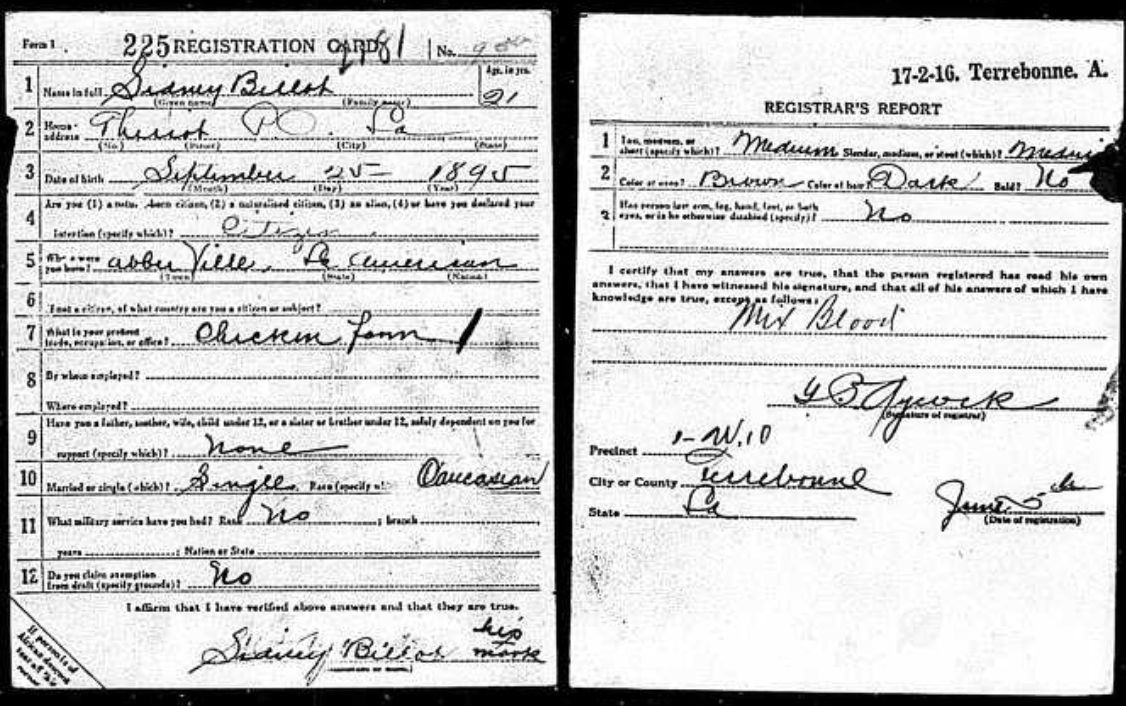 Form 1 225 REGISTRATION CARD No.
1 Name in full Sidney Billot Age, in yrs. 21
(Given name) (Family name)
2 Home address Theriot P.O. La
(No.) (Street) (City) (State)
3 Date of birth September 25 1895
(Month) (Day) (Year)
4 Are you (1) a natural born citizen, (2) a naturalized citizen, (3) an alien, (4) or have you declared your
intention (specify which)? Citizen
5 Where were you born? abber Ville, La american
(Town) (State) (Nation)
6 If not a citizen, of what country are you a citizen or subject?
7 What is your present trade, occupation, or office? Chicken farm
8 By whom employed?
Where employed?
9 Have you a father, mother, wife, child under 12, or a sister or brother under 12, solely dependent on you for
support (specify which)? None
10 Married or single (which)? Single Race (specify Caucasian
11 What military service have you had? Rank No ; branch
years ; Nation or State
12 Do you claim exemption from draft (specify grounds)? No
I affirm that I have verified above answers and that they are true.
his
Sidney Billot mark
If person is of
African descent
tear off this
corner
17-2-16. Terrebonne. A.
REGISTRAR'S REPORT
1 Tall, medium, or short (specify which)? Medium Slender, medium, or stout (which)? Medium
2 Color of eyes? Brown Color of hair? Dark Bald? No
3 Has person lost arm, leg, hand, foot, or both
eyes, or is he otherwise disabled (specify)? No
I certify that my answers are true, that the person registered has read his own
answers, that I have witnessed his signature, and that all of his answers of which I have
knowledge are true, except as follows:
Mix Blood
Y B Aycock
(Signature of registrar)
Precinct 1-W.10
City or County Terrebonne
State La
June 5
(Date of registration)